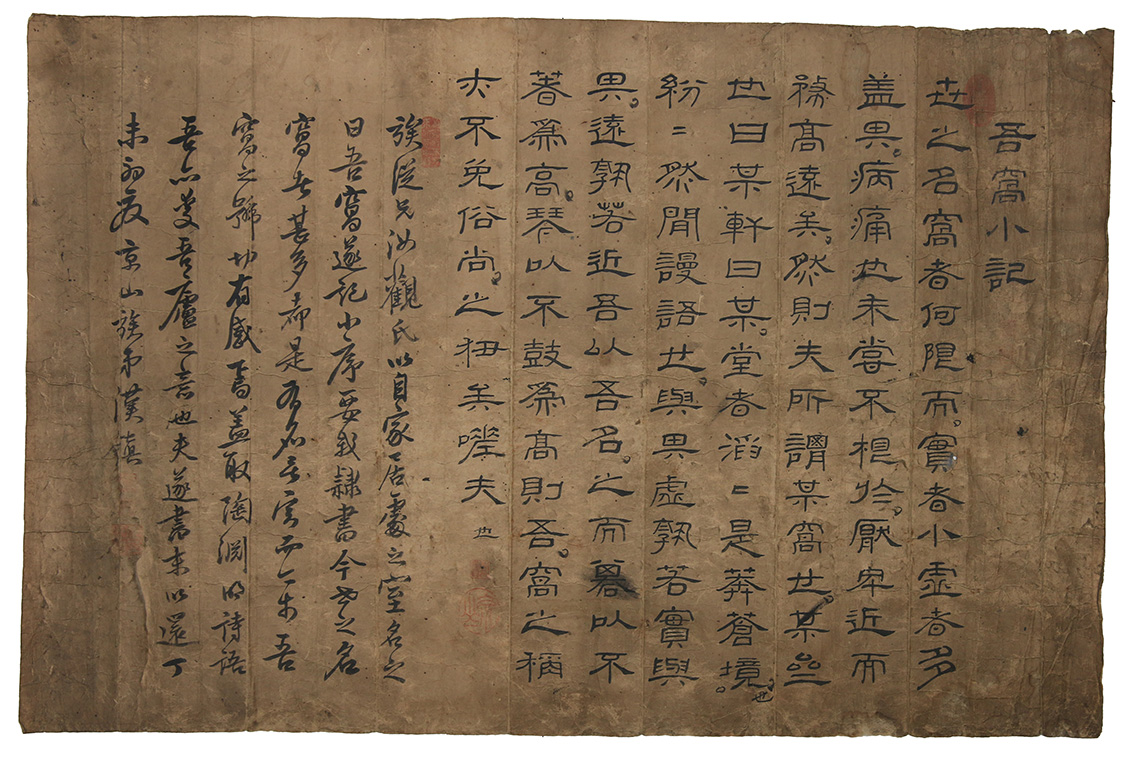 吾窩小記
世之名窩者何限而實者小虛者多
盖其病痛也未嘗不根於厭卑近而
務高遠矣然則夫所謂某窩也某
也曰某軒曰某堂者滔〻是莽蒼境也
紛〻然閒謾語也與其虛孰若實與
其遠孰若近吾以吾名之而畧以不
著爲高琴以不鼓爲高則吾窩之稱
亦不免俗尚之
矣噬夫也
族從兄汝觀氏以自家居處之室名之
曰吾窩遂記小序要我隷書今世之名
窩者甚多而是有名無實而今吾
窩之號切有感焉盖取陶淵明詩語
吾亦愛吾廬之意也夫遂書末以還丁
未初夏京山族弟漢鎮